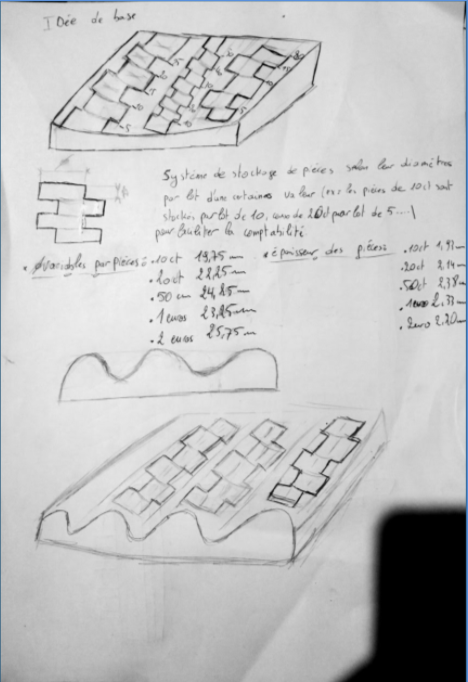 Idée de base
Système de stockage de pièces selon leur diamètre
par lot d'une certaines valeur (ex: les pièces de 10ct sont
stockés par lot de 10, ceux de 20ct par lot de 5....)
pour faciliter la comptabilité
• ø variables par pièces: • 10ct 19,75 mm
• 20ct 22,25 mm
• 50 cm 24,25 mm
• 1 euros 23,25 mm
• 2 euros 25,75 mm
• épaisseur des pièces • 10ct 1,93 m
• 20ct 2,14 m
• 50ct 2,38 m
• 1euro 2,33 m
• 2euro 2,20 m